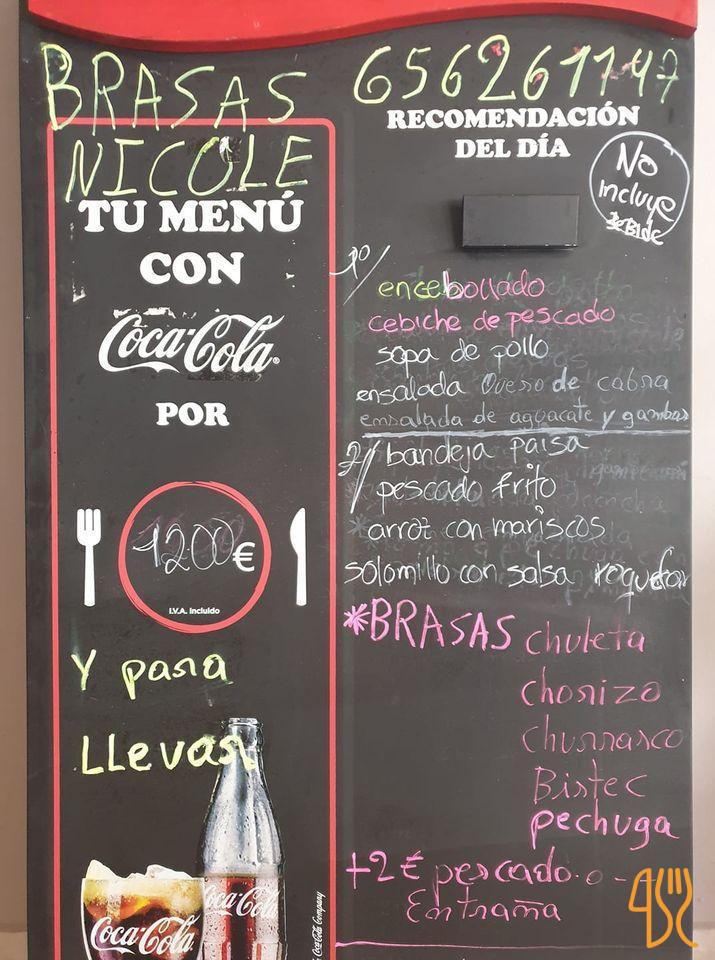 BRASAS
NICOLE
TU MENÚ
CON
Coca-Cola
POR
1200€
I.V.A. Incluido
Y para
LLevar
Coca-Cola
Coca-Cola
Coca-Cola Company
656261147
RECOMENDACIÓN
DEL DÍA
No
incluye
1º/
encebollado
cebiche de pescado
sopa de pollo
ensalada Queso de cabra
ensalada de aguacate y gambas
2/ bandeja paisa
pescado frito
*arroz con mariscos
solomillo con salsa roquefor
*BRASAS chuleta
chorizo
churrasco
Bistec
pechuga
+2€ pescado o -
Entraña